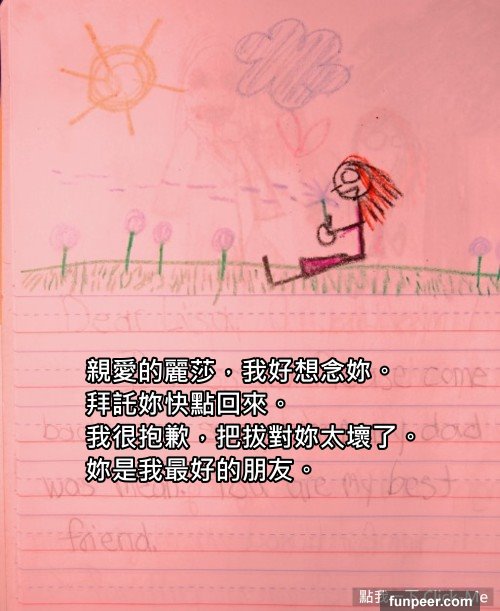 親愛的麗莎，我好想念妳。
拜託妳快點回來。
我很抱歉，把拔對妳太壞了。
妳是我最好的朋友。
Dear Lisa,
come
dad
was mean. You are my best
friend.
點我 Click Me
funpeer.com